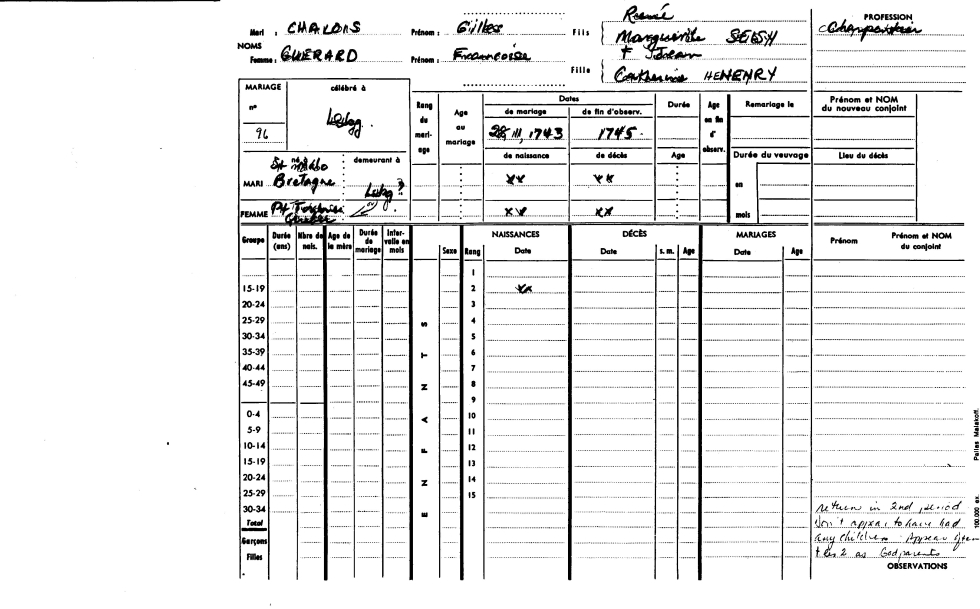 Mari : CHALOIS Prénom : Gilles Fils { René
Marguerite SEBSH
NOMS
Femme : GUERARD Prénom : Françoise Fille { + Jean
Catherine HENENRY
PROFESSION
Charpentier
MARIAGE
n°
96
célébré à
Lsbg.
Rang du mari- age
Age au mariage
Dates
de mariage de fin d'observ.
28, III, 1743 1745.
de naissance de décès
Durée
Age
Age en fin d' observ.
Remariage le
Durée du veuvage
en
mois
Prénom et NOM du nouveau conjoint
Lieu du décès
né à
demeurant à
St Malo
MARI Bretagne Lsbg ?
xx xx
FEMME Pt
xx xx
Groupe Durée (ans) Nbre de nais. Age de la mère Durée de mariage Inter- valle en mois Sexe Rang
NAISSANCES
Date
DÉCÈS
Date s. m. Age
MARIAGES
Date Age
Prénom Prénom et NOM du conjoint
ENFANTS
1
15-19 2 xx
20-24 3
25-29 4
30-34 5
35-39 6
40-44 7
45-49 8
9
0-4 10
5-9 11
10-14 12
15-19 13
20-24 14
25-29 15
30-34
Total
Garçons
Filles
return in 2nd period
Don't appear to have had
any children. Appear often
as Godparents
OBSERVATIONS
100.000 ex. Pailles Malakoff.